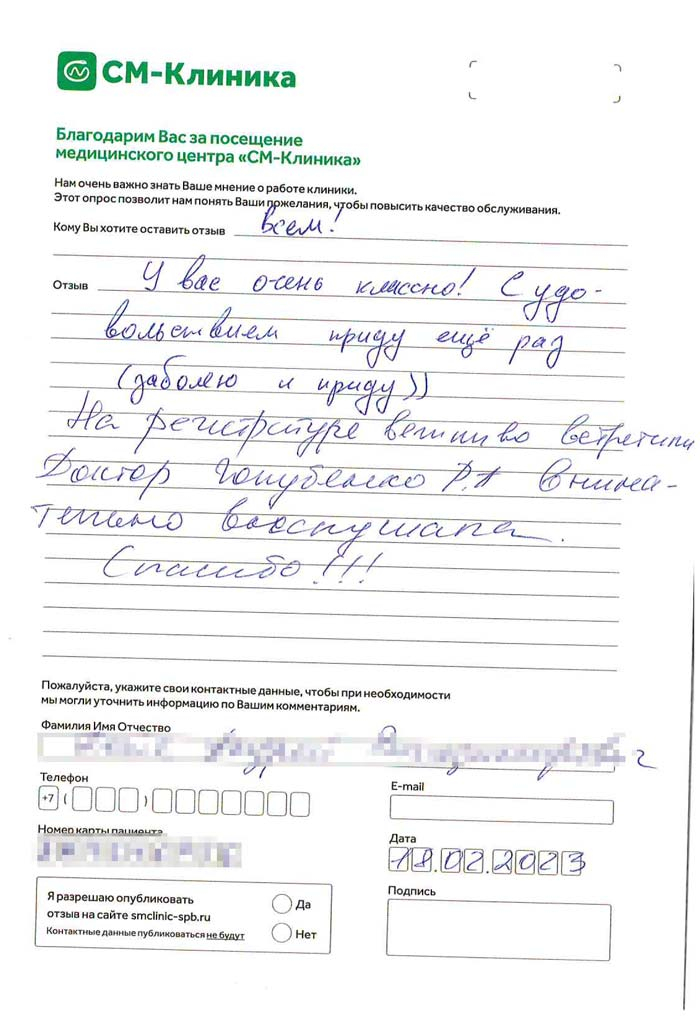 СМ-Клиника
Благодарим Вас за посещение
медицинского центра «СМ-Клиника»
Нам очень важно знать Ваше мнение о работе клиники.
Этот опрос позволит нам понять Ваши пожелания, чтобы повысить качество обслуживания.
Кому Вы хотите оставить отзыв всем!
Отзыв У вас очень классно! С удо-
вольствием приду ещё раз
(заболею и приду))
На регистратуре вежливо встретили
Доктор Голубенко Р.А внима-
тельно выслушала.
Спасибо!!!
Пожалуйста, укажите свои контактные данные, чтобы при необходимости
мы могли уточнить информацию по Вашим комментариям.
Фамилия Имя Отчество
Телефон
+7 ( )
E-mail
Номер карты пациента
Дата
18.02.2023
Подпись
Я разрешаю опубликовать
отзыв на сайте smclinic-spb.ru
Контактные данные публиковаться не будут
Да
Нет